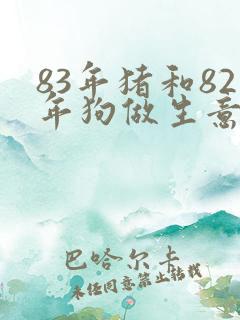 83年猪和82
年狗做生意
巴哈尔卡
未经同意禁止转载